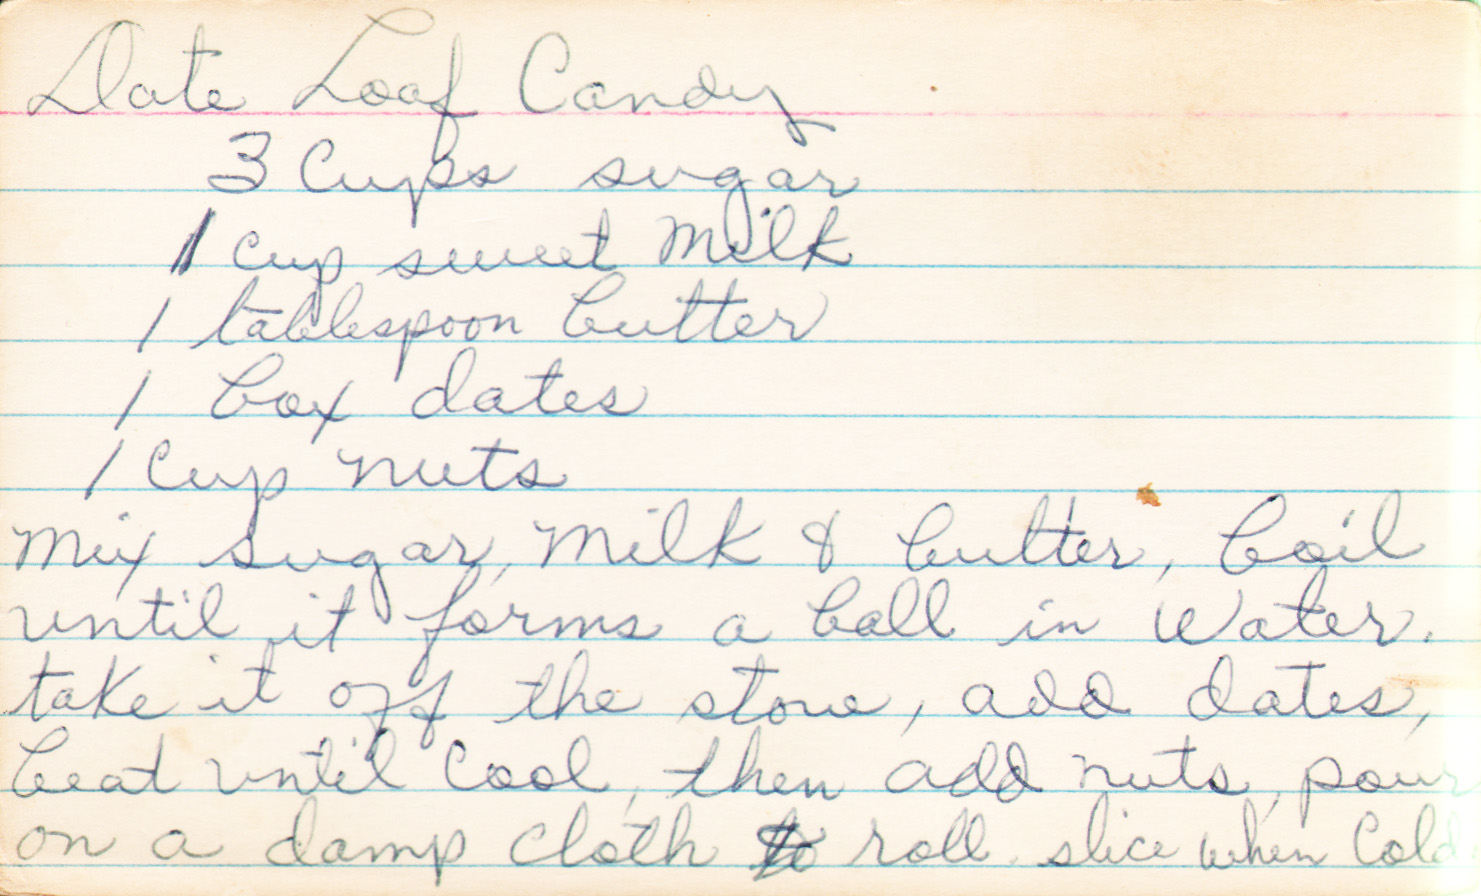 Date Loaf Candy
3 Cups sugar
1 cup sweet Milk
1 tablespoon butter
1 box dates
1 Cup nuts
Mix sugar, Milk & butter, boil
until it forms a ball in Water.
take it off the stove, add dates,
beat until Cool, then add nuts, pour
on a damp cloth to roll. slice when Cold.